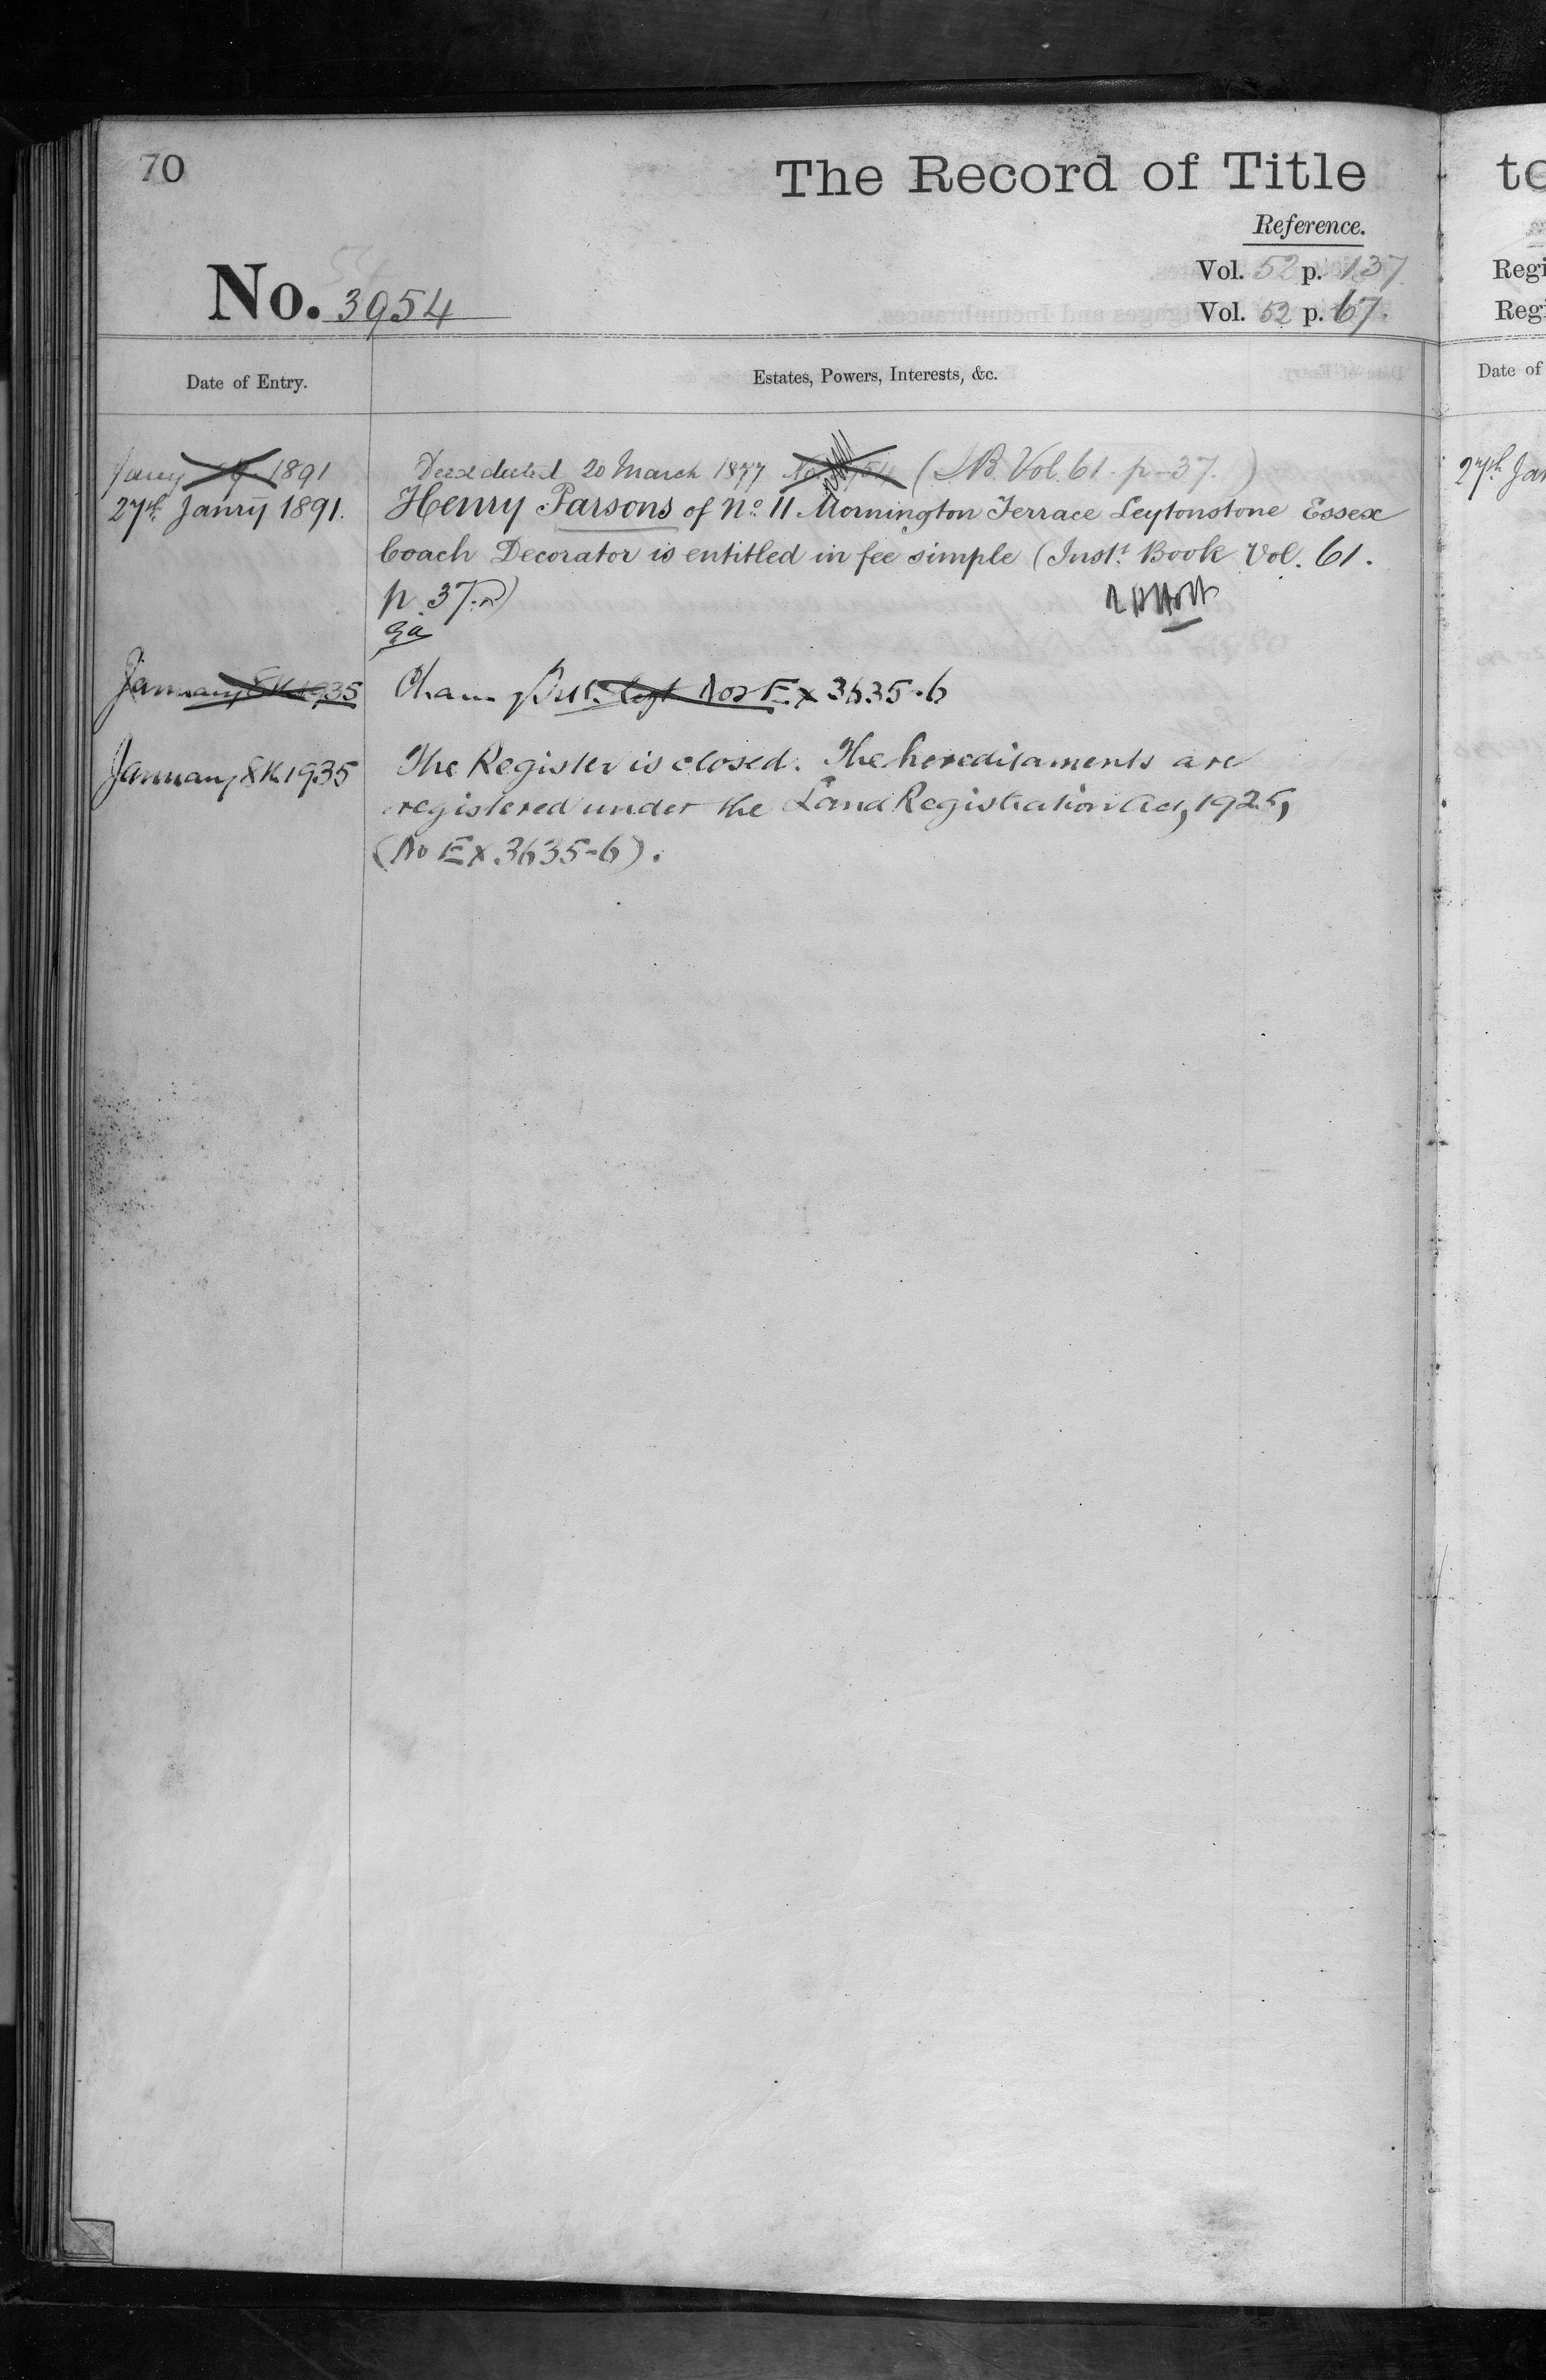 70
The Record of Title
Reference.
Vol. 52 p. 137.
No. 3954
Vol. 52 p. 67.
Date of Entry.
Estates, Powers, Interests, &c.
Jany 1891
Deed dated 20 March 1877 (I.B. Vol. 61. p-37.)
27th Janry 1891.
Henry Parsons of No. 11 Mornington Terrace Leytonstone Essex
Coach Decorator is entitled in fee simple (Inst. Book Vol. 61.
p. 37.)
January 8th 1935
Nos Ex 3635-6
January 8th 1935
The Register is closed. The hereditaments are
registered under the Land Registration Act, 1925,
(No Ex. 3635-6).
to
Regi
Regi
Date of
27th Jan